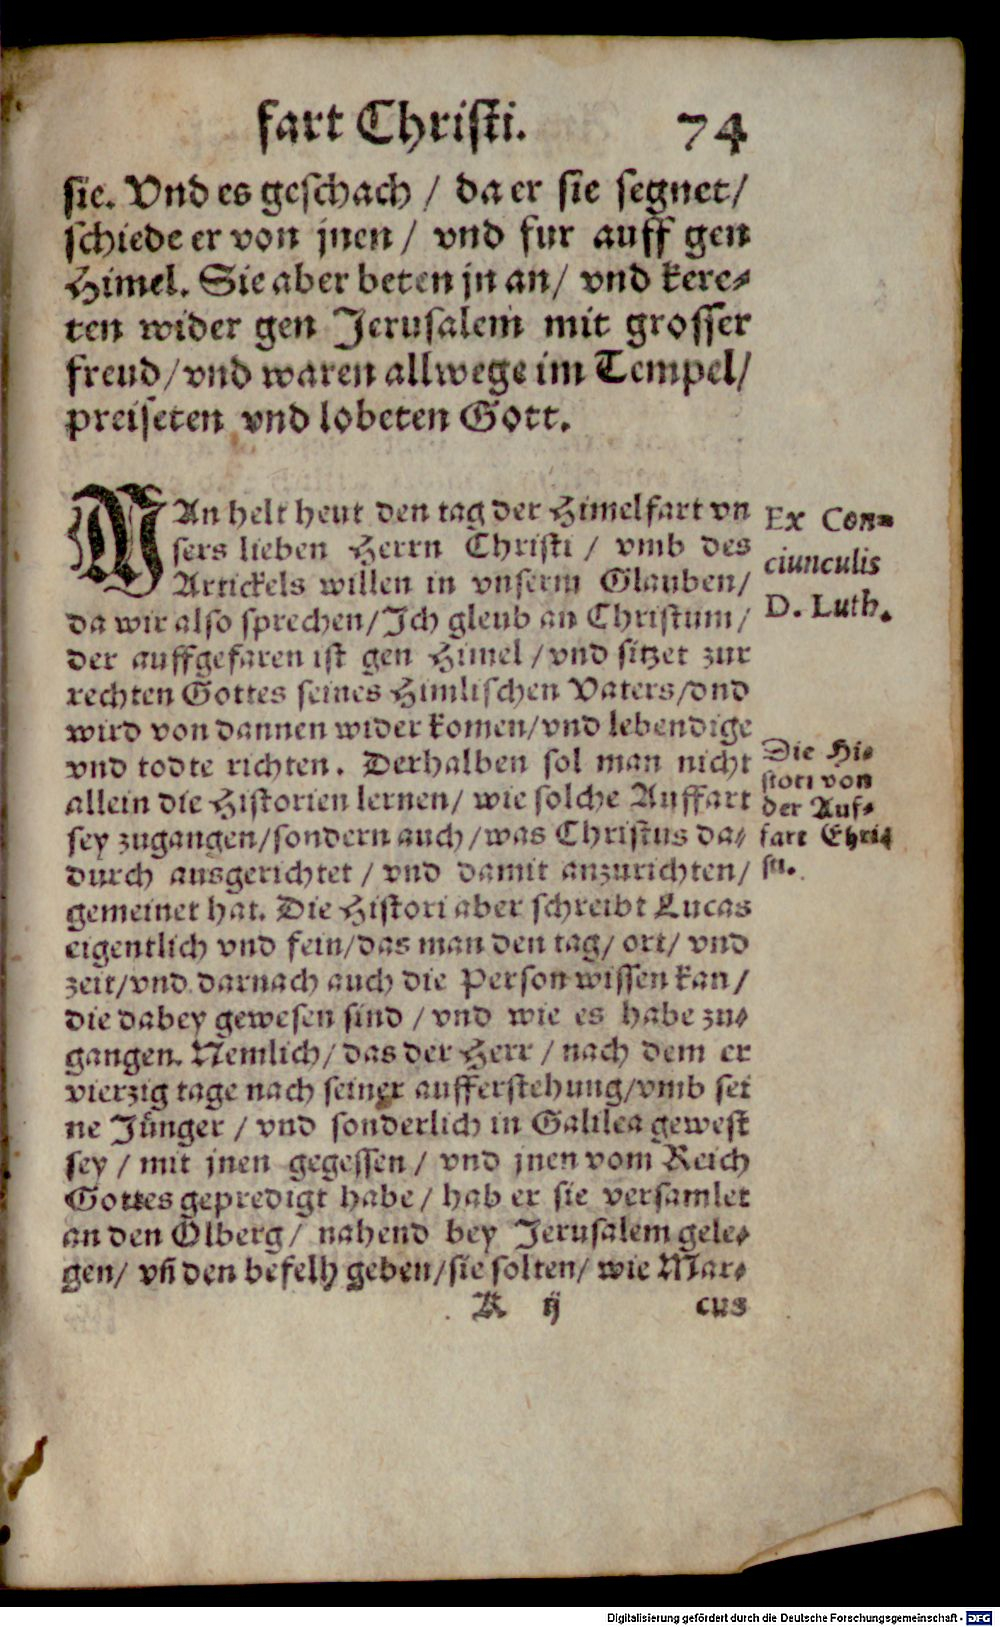 fart Christi. 74
sie. Vnd es geschach / da er sie segnet/
schiede er von jnen / vnd fur auff gen
Himel. Sie aber beten jn an/ vnd kere⸗
ten wider gen Jerusalem mit grosser
freud/vnd waren allwege im Tempel/
preiseten vnd lobeten Gott.
MAn helt heut den tag der Himelfart vn
sers lieben Herrn Christi / vmb des
Artickels willen in vnserm Glauben/
da wir also sprechen/Ich gleub an Christum/
der auffgefaren ist gen Himel /vnd sitzet zur
rechten Gottes seines Himlischen Vaters/vnd
wird von dannen wider komen/vnd lebendige
vnd todte richten. Derhalben sol man nicht
allein die Historien lernen/ wie solche Auffart
sey zugangen/sondern auch/was Christus da⸗
durch ausgerichtet / vnd damit anzurichten/
gemeinet hat. Die Histori aber schreibt Lucas
eigentlich vnd fein/das man den tag/ ort/ vnd
zeit/vnd darnach auch die Person wissen kan/
die dabey gewesen sind / vnd wie es habe zu⸗
gangen. Nemlich/das der Herr / nach dem er
vierzig tage nach seiner aufferstehung/vmb sei
ne Jünger / vnd sonderlich in Galilea gewest
sey / mit jnen gegessen / vnd jnen vom Reich
Gottes gepredigt habe/ hab er sie versamlet
an den Olberg/ nahend bey Jerusalem gele⸗
gen/ vñ den befelh geben/sie solten/ wie Mar⸗
K ij cus
Ex Con⸗
ciunculis
D. Luth.
Die Hi⸗
stori von
der Auf⸗
fart Chri
sti.
Digitalisierung gefördert durch die Deutsche Forschungsgemeinschaft - DFG